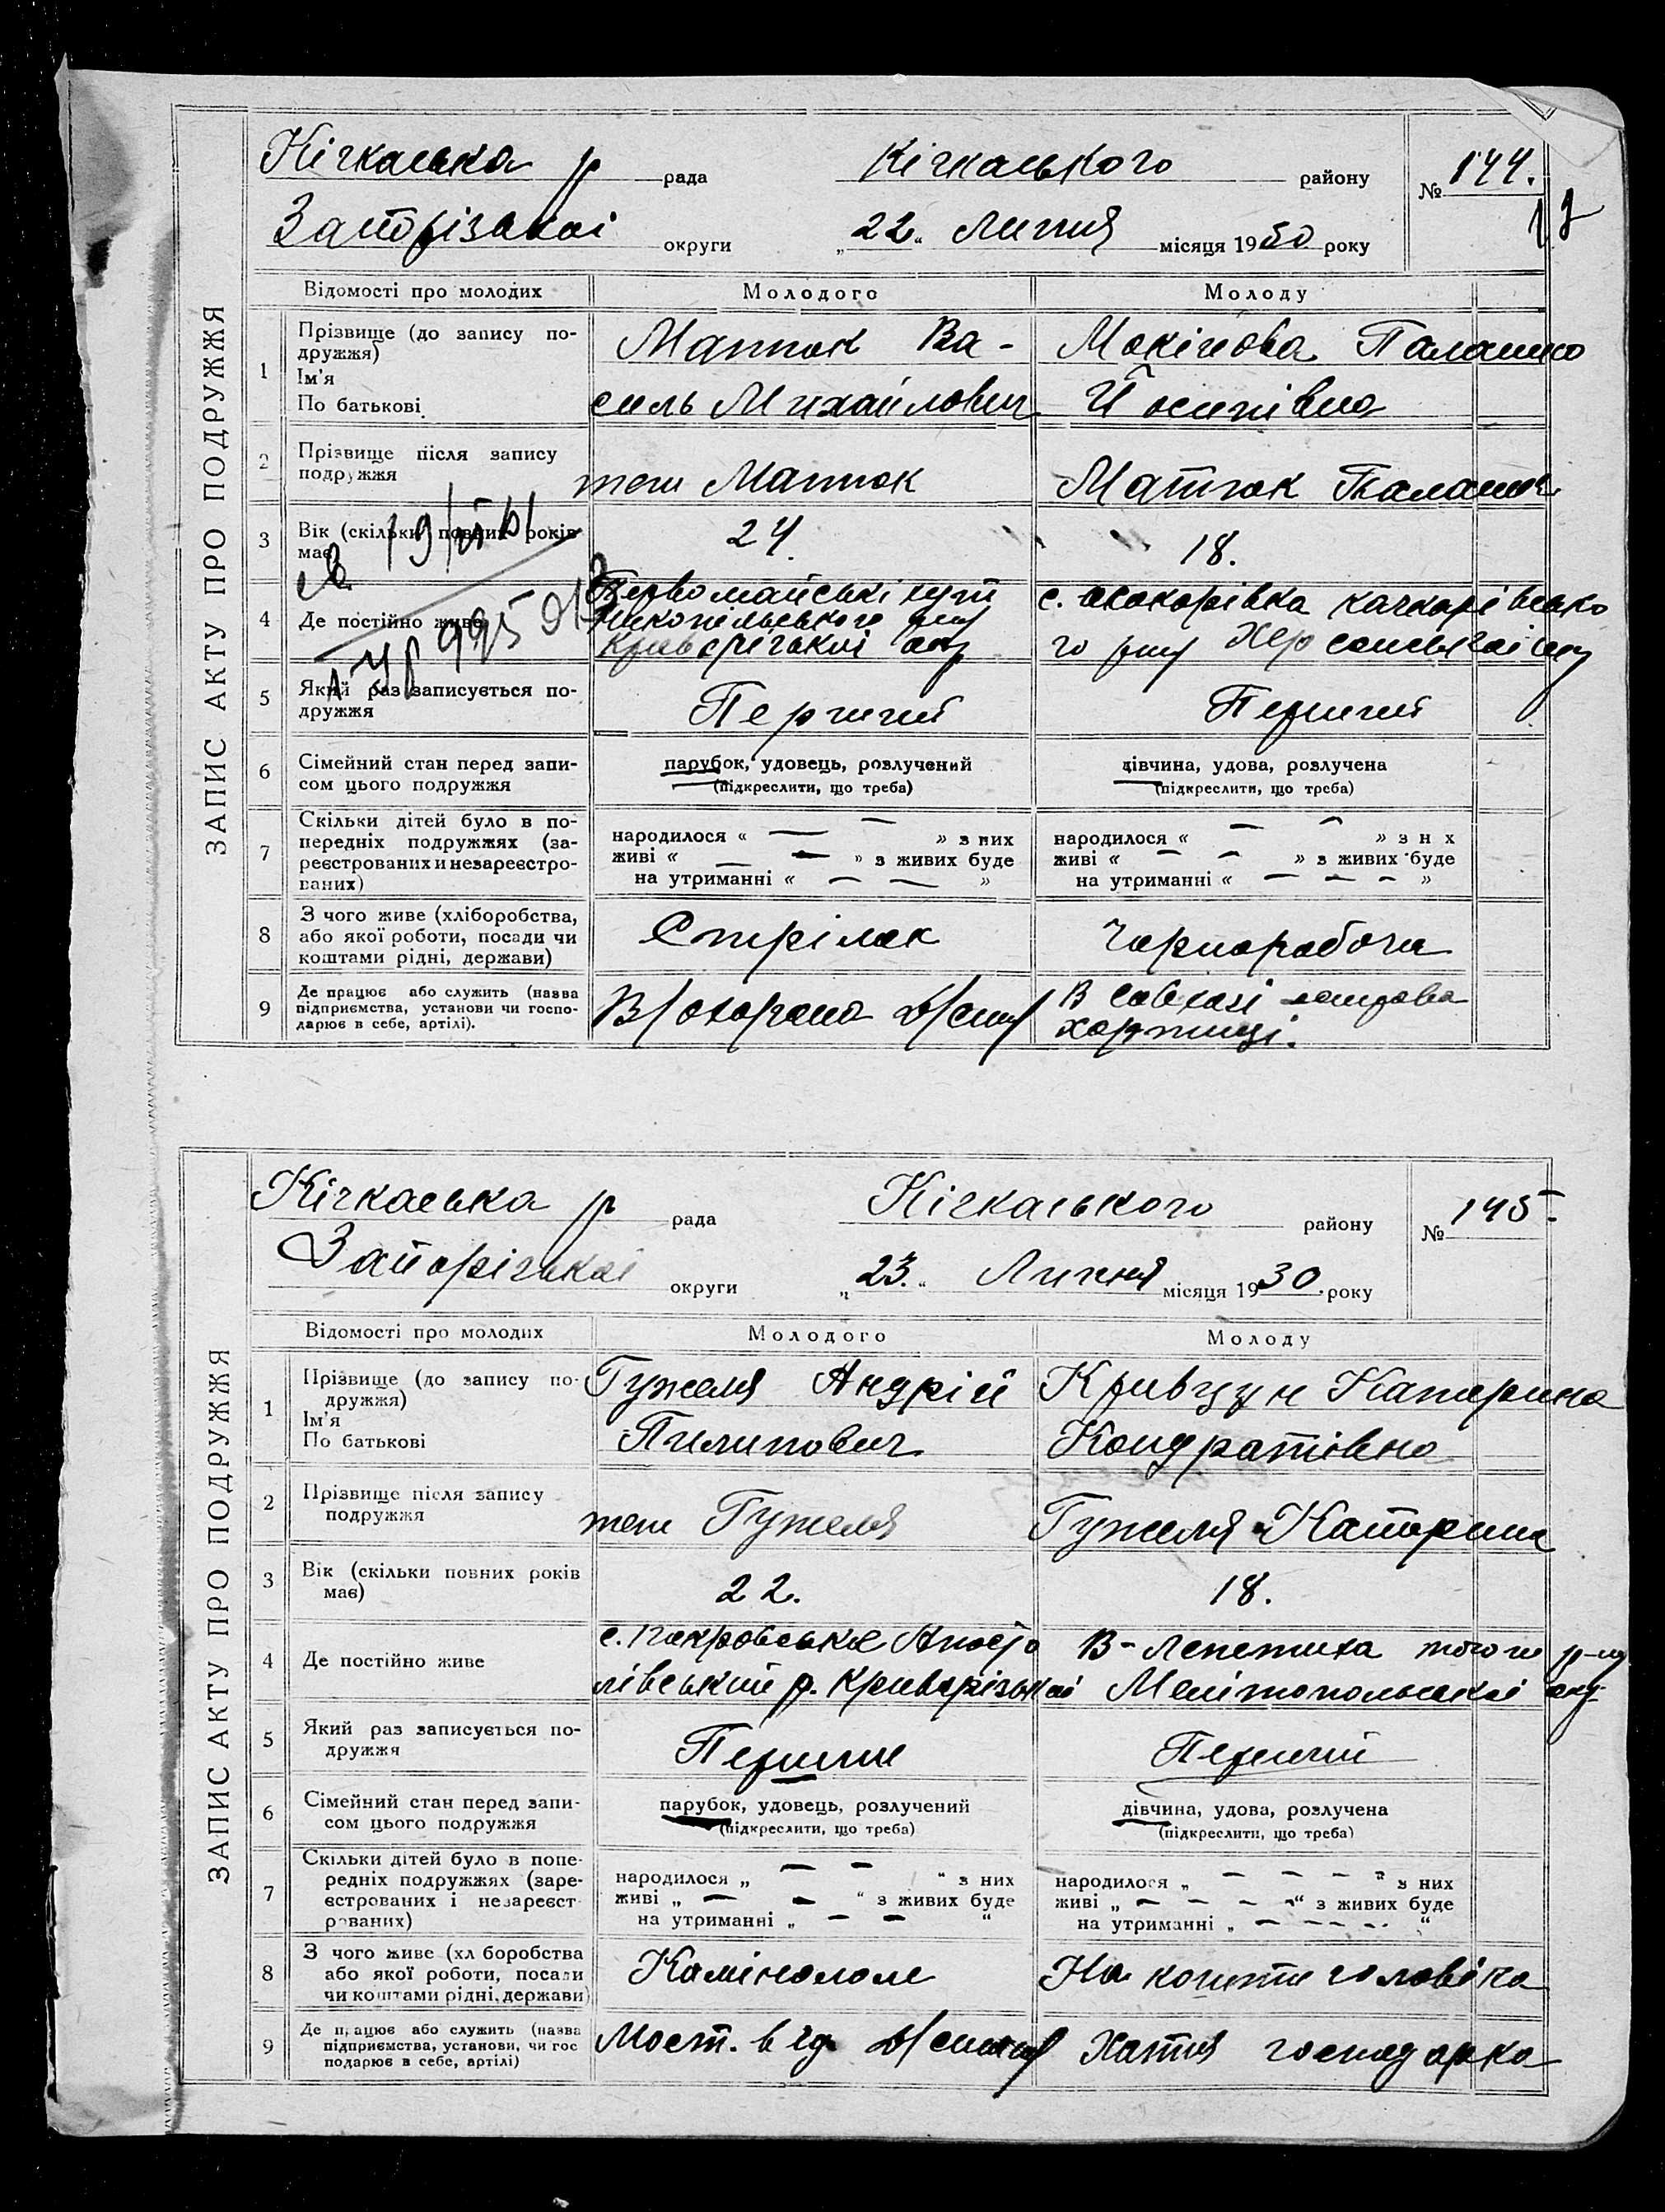 ЗАПИС АКТУ ПРО ПОДРУЖЖЯ
Кічкаська р рада Кічкаського району № 144.
Запорізької округи „22“ Липня місяця 1930 року
Відомості про молодих Молодого Молоду
1 Прізвище (до запису подружжя)
Ім'я
По батькові
Матюк Ва-
силь Михайлович
Мокінова Палашко
Йосипівна
2 Прізвище після запису
подружжя
теж Матюк
Матюк Палашк
3 Вік (скільки повних років
має)
24.
18.
4 Де постійно живе
Первомайські хут
Нікопільського рну
Криворізької окр
с. Осокорівка качкарівсько
го рну Херсонської окр
5 Який раз записується по-
дружжя
Перший
Перший
6 Сімейний стан перед запи-
сом цього подружжя
парубок, удовець, розлучений
(підкреслити, що треба)
дівчина, удова, розлучена
(підкреслити, що треба)
7 Скільки дітей було в по-
передніх подружжях (за-
реєстрованих и незареєстро-
ваних)
народилося « — — » з них
живі « — — » з живих буде
на утриманні « — — »
народилося « — — » з н х
живі « — — » з живих буде
на утриманні « — — — »
8 З чого живе (хліборобства,
або якої роботи, посади чи
коштами рідні, держави)
Стрілок
Чорнорабоча
9 Де працює або служить (назва
підприємства, установи чи госпо-
дарює в себе, артілі).
В/охорона Д/
В Совхозі
хортиці.
ЗАПИС АКТУ ПРО ПОДРУЖЖЯ
Кічкаська р рада Кічкаського району № 145.
Запорізької округи „23.“ Липня місяця 1930 року
Відомості про молодих Молодого Молоду
1 Прізвище (до запису по-
дружжя)
Ім'я
По батькові
Гужеля Андрій
Пилипович
Кривцун Катерина
Кондратівна
2 Прізвище після запису
подружжя
теж Гужеля
Гужеля Катерина
3 Вік (скільки повних років
має)
22.
18.
4 Де постійно живе
с. Покровське Апосто
лівський р. Криворізької
В-Лепетиха того ж р-ну
Мелітопольської окр
5 Який раз записується по-
дружжя
Перший
Перший
6 Сімейний стан перед запи-
сом цього подружжя
парубок, удовець, розлучений
(підкреслити, що треба)
дівчина, удова, розлучена
(підкреслити, що треба)
7 Скільки дітей було в попе-
редніх подружжях (заре-
єстрованих і незареєст-
рованих)
народилося „ — — “ з них
живі „ — — “ з живих буде
на утриманні „ — — “
народилося „ — — — “ з них
живі „ — — — “ з живих буде
на утриманні „ — — — “
8 З чого живе (хл боробства
або якої роботи, посади
чи коштами рідні, держави)
Камінолом
На кошти головіка
9 Де працює або служить (назва
підприємства, установи, чи гос
подарює в себе, артілі)
Мост. від
Хатня господарка